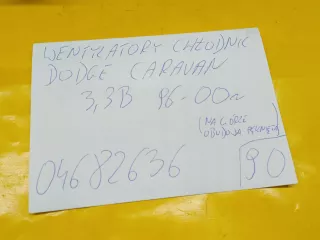 WENTYLATORY CHŁODNIC
DODGE CARAVAN
3,3B 96-00r
(NA GÓRZE
OBUDOWA PĘKNIĘTA)
04682636
90